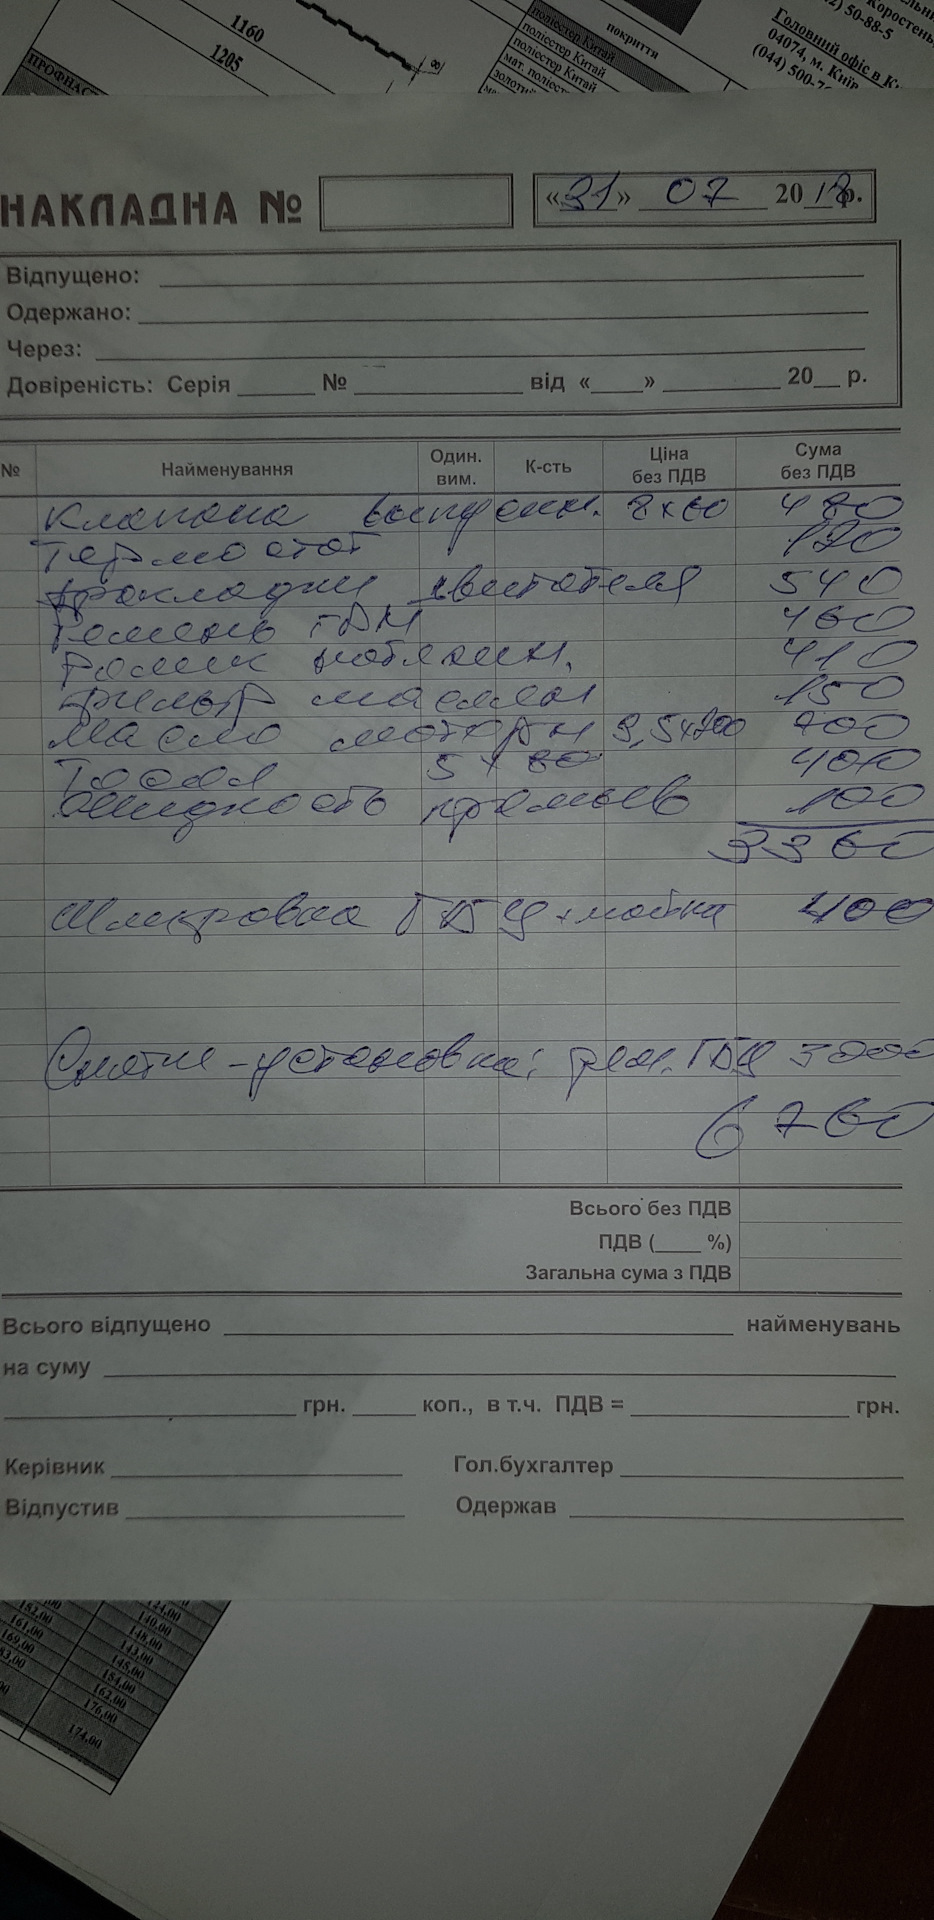 1160
1205
ПРОФНАС
покриття
поліестер Китай
поліестер Китай
поліестер Китай
мат. поліест
золоти
Коростень,
2) 50-88-5
Головний офіс в К
04074, м. Київ
(044) 500-7
НАКЛАДНА № «31» 07 2018 р.
Відпущено:
Одержано:
Через:
Довіреність: Серія № від « » 20 р.
№ Найменування Один. вим. К-сть Ціна без ПДВ Сума без ПДВ
Клапана выпускн. 8х60 480
Термостат 120
прокладки двигателя 540
Ремень ГРМ 460
Ролик натяжн. 410
Фильтр маслян 150
Масло моторн 3,5х200 700
Тосол 5 х 80 400
Жидкость промыв 100
3360
Шлифовка ГБЦ + мойка 400
Снятие-установка; рем. ГБЦ 3000
6760
Всього без ПДВ
ПДВ ( %)
Загальна сума з ПДВ
Всього відпущено найменувань
на суму
грн. коп., в т.ч. ПДВ = грн.
Керівник Гол.бухгалтер
Відпустив Одержав
152,00
161,00
169,00
83,00
124,00
140,00
148,00
143,00
145,00
154,00
162,00
176,00
174,00